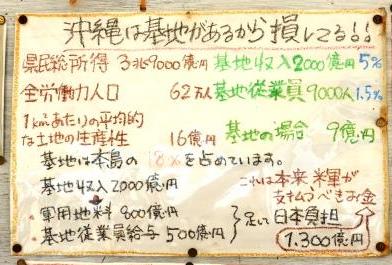 沖縄は基地があるから損してる!!
県民総所得 3兆9000億円 基地収入2000億円 5%
全労働力人口 62万人 基地従業員9000人 1.5%
1km²あたりの平均的
な土地の生産性 16億円 基地の場合 9億円
基地は本島の 18%を占めています。
基地収入2000億円 これは本来米軍が
支払うべきお金
・軍用地料 800億円
・基地従業員給与 500億円 足して 日本負担
1.300億円